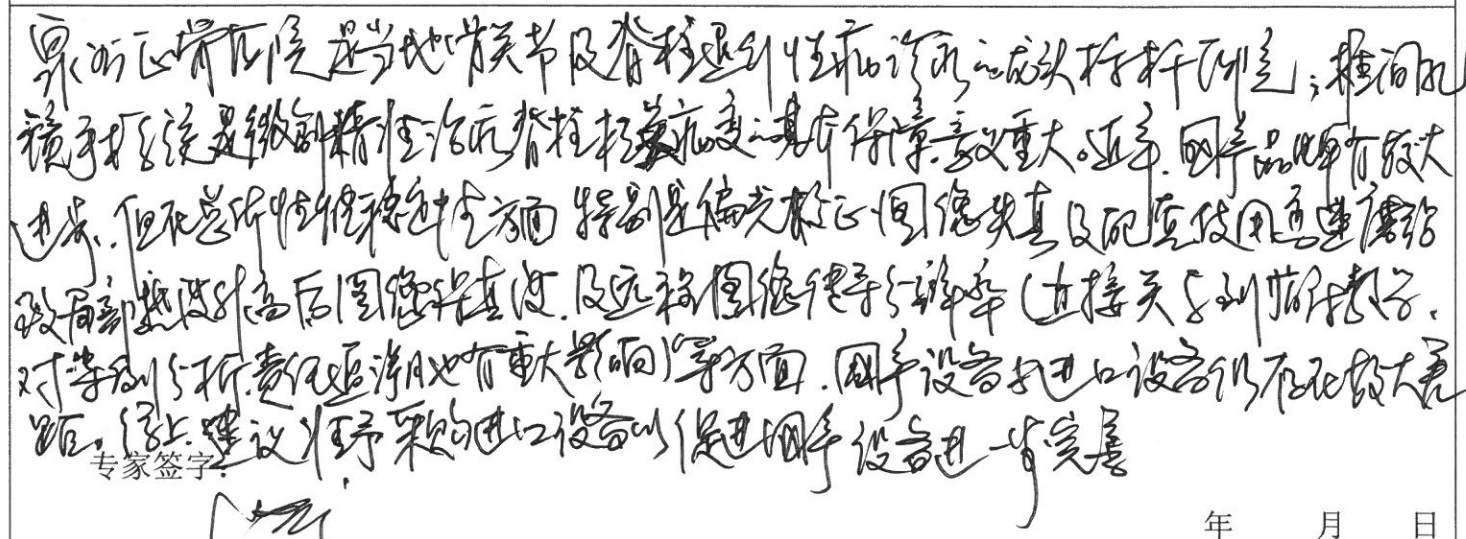 泉州正骨医院是当地骨关节及脊柱退行性病诊疗的龙头标杆医院；椎间孔
镜手术系统是微创精准治疗脊柱相关病变的基本保障，意义重大。近年，国产品牌有较大
进步，但在总体性能稳定性方面特别是偏光校正图像失真及配套使用高速磨钻
致局部热度升高后图像保真度，及远程图像传导分辨率（直接关系到临床教学，
对案例分析，责任追溯也有重大影响）等方面，国产设备与进口设备仍存在较大差
距。综上，建议准予采购进口设备以促进国产设备进一步完善
专家签字：
年 月 日